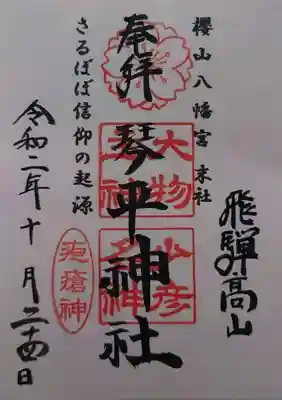 櫻山八幡宮 末社
飛驒高山
奉拝
琴平神社
大物
主神
少彦
名神
さるぼぼ信仰の起源
疱瘡神
令和二年十月二十四日